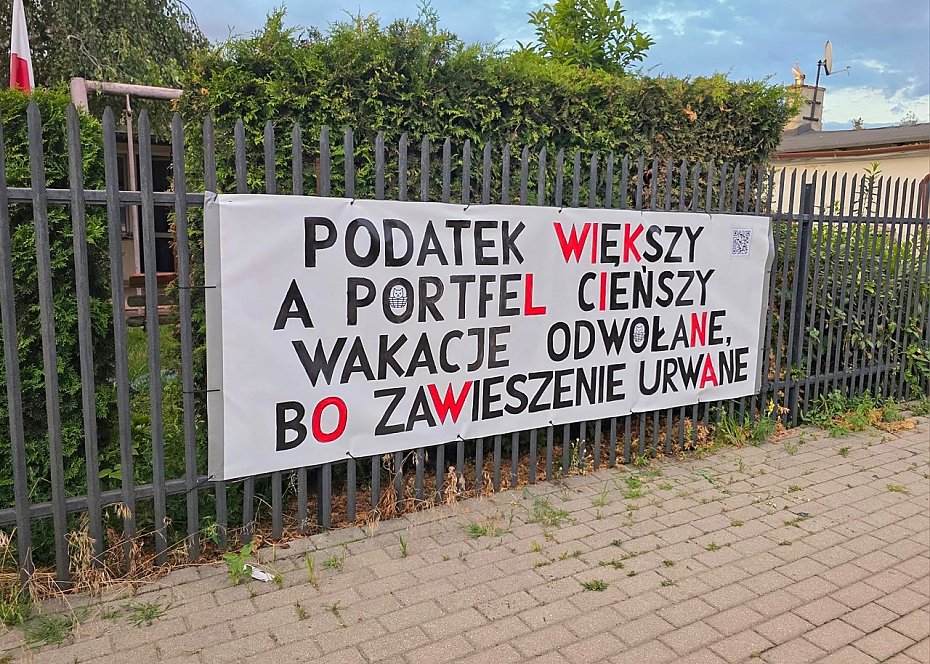 PODATEK WIĘKSZY
A PORTFEL CIEŃSZY
WAKACJE ODWOŁANE,
BO ZAWIESZENIE URWANE